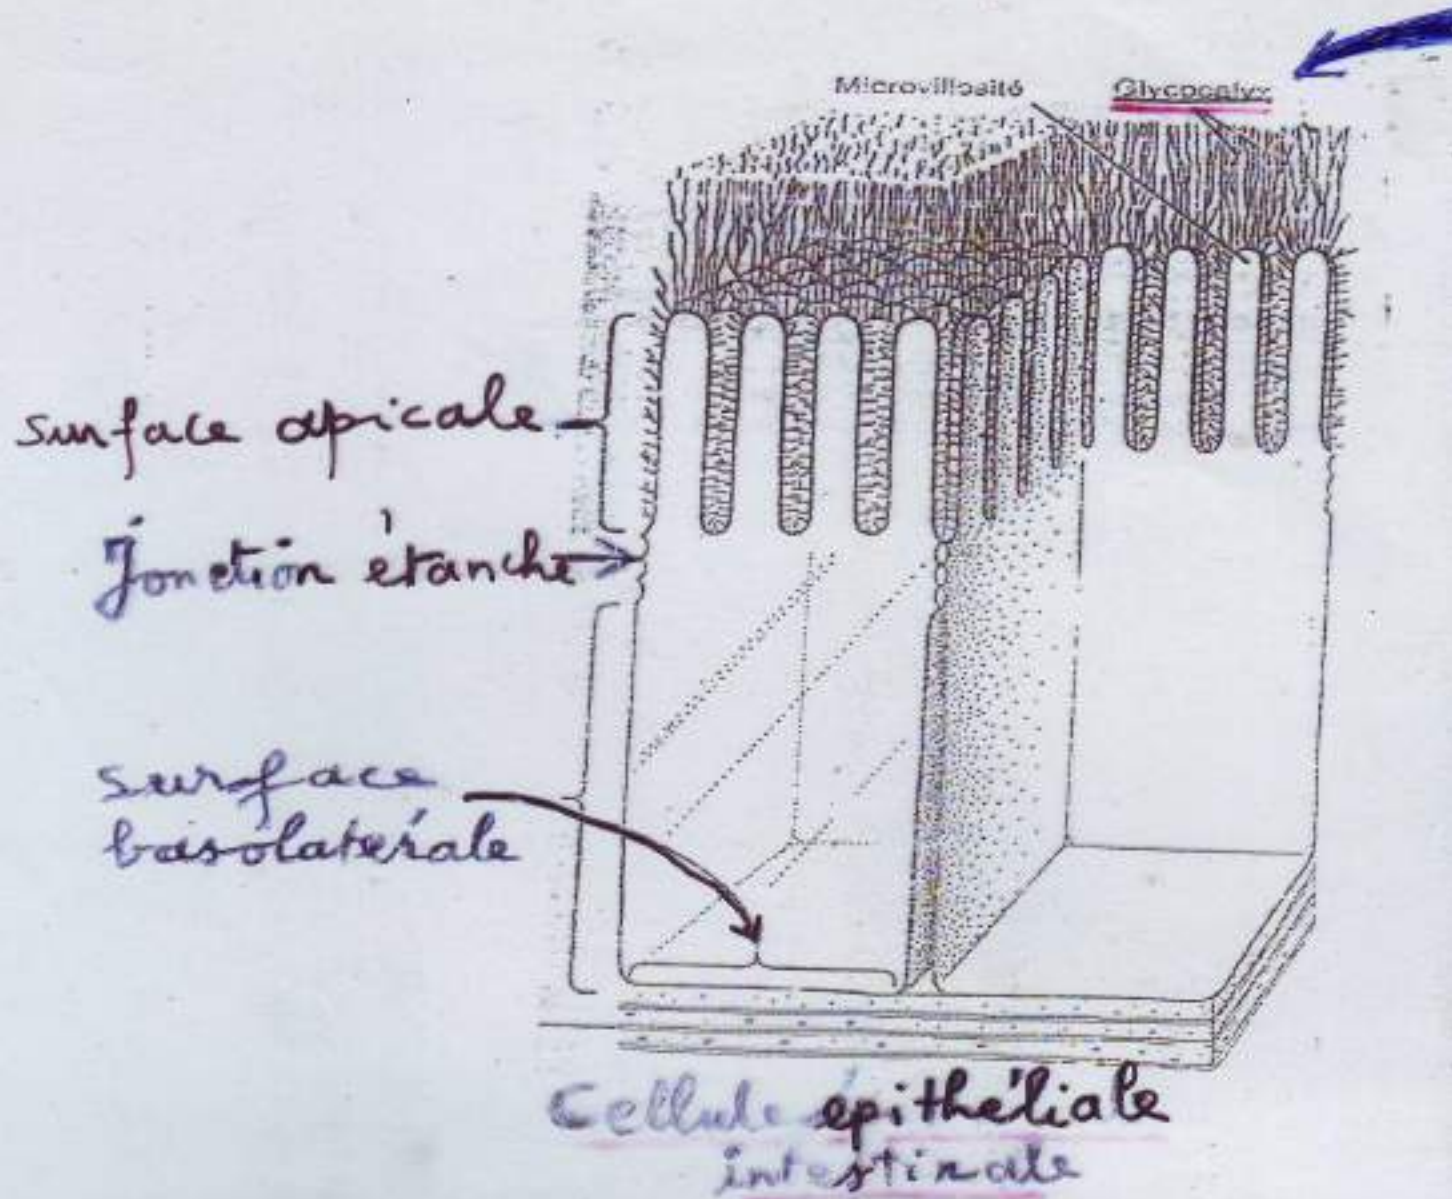 Microvillosité
Glycocalyx
surface apicale
Jonction étanche
surface
basolatérale
Cellule épithéliale
intestinale